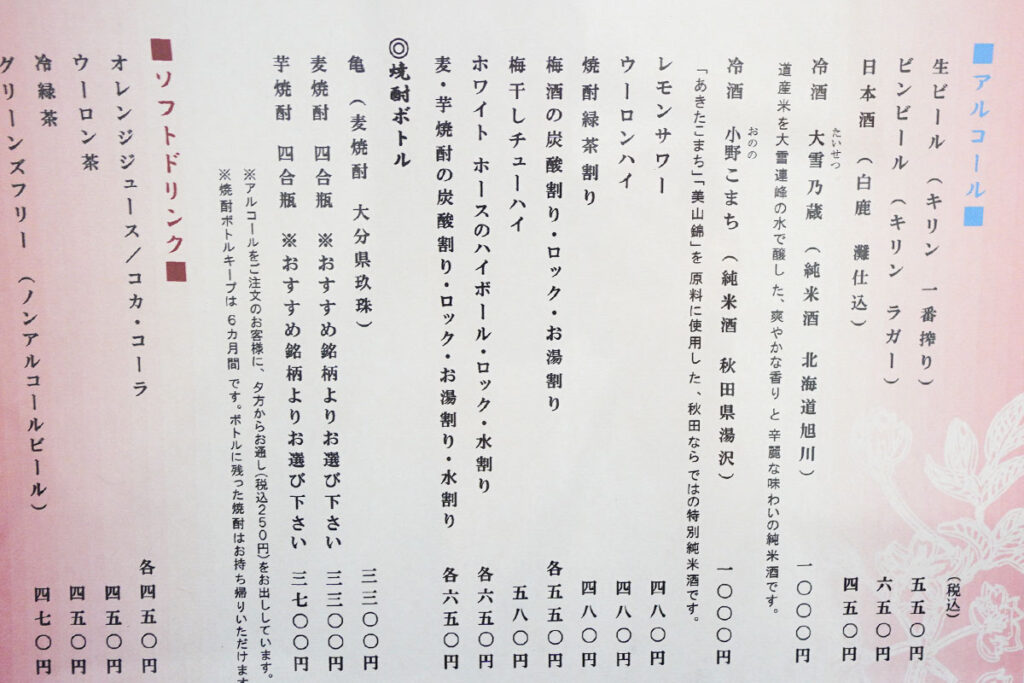 ■アルコール■
(税込)
生ビール (キリン 一番搾り) 五五〇円
ビンビール (キリン ラガー) 六五〇円
日本酒 (白鹿 灘仕込) 四五〇円
冷酒 大雪乃蔵 (純米酒 北海道旭川) 一〇〇〇円
たいせつ
道産米を大雪連峰の水で醸した、爽やかな香りと辛麗な味わいの純米酒です。
冷酒 小野こまち (純米酒 秋田県湯沢) 一〇〇〇円
おのの
「あきたこまち」「美山錦」を原料に使用した、秋田ならではの特別純米酒です。
レモンサワー 四八〇円
ウーロンハイ 四八〇円
焼酎緑茶割り 四八〇円
梅酒の炭酸割り・ロック・お湯割り 各五五〇円
梅干しチューハイ 五八〇円
ホワイトホースのハイボール・ロック・水割り 各六五〇円
麦・芋焼酎の炭酸割り・ロック・お湯割り・水割り 各六五〇円
◎焼酎ボトル
亀 (麦焼酎 大分県玖珠) 三三〇〇円
麦焼酎 四合瓶 ※おすすめ銘柄よりお選び下さい 三三〇〇円
芋焼酎 四合瓶 ※おすすめ銘柄よりお選び下さい 三七〇〇円
※アルコールをご注文のお客様に、夕方からお通し(税込250円)をお出ししています。
※焼酎ボトルキープは6カ月間です。ボトルに残った焼酎はお持ち帰りいただけます
■ソフトドリンク■
オレンジジュース/コカ・コーラ 各四五〇円
ウーロン茶 四五〇円
冷緑茶 四五〇円
グリーンズフリー (ノンアルコールビール) 四七〇円